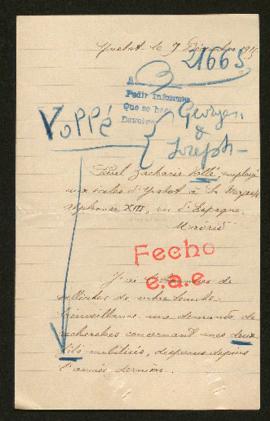 Yvetot le 9 Décembre 1915
21665
A
Pedir Informes
Que se ha
Devolver
Vollé
Georges
&
Joseph
Paul Zacharie Vollé employé
aux écoles d'Yvetot à Sa Majesté
Alphonse XIII, roi d'Espagne,
Madrid
Fecho
e.a.e.
J'ai l'honneur de
solliciter de votre haute
bienveillance une demande de
recherches concernant mes deux
fils mobilisés, disparus depuis
l'année dernière.